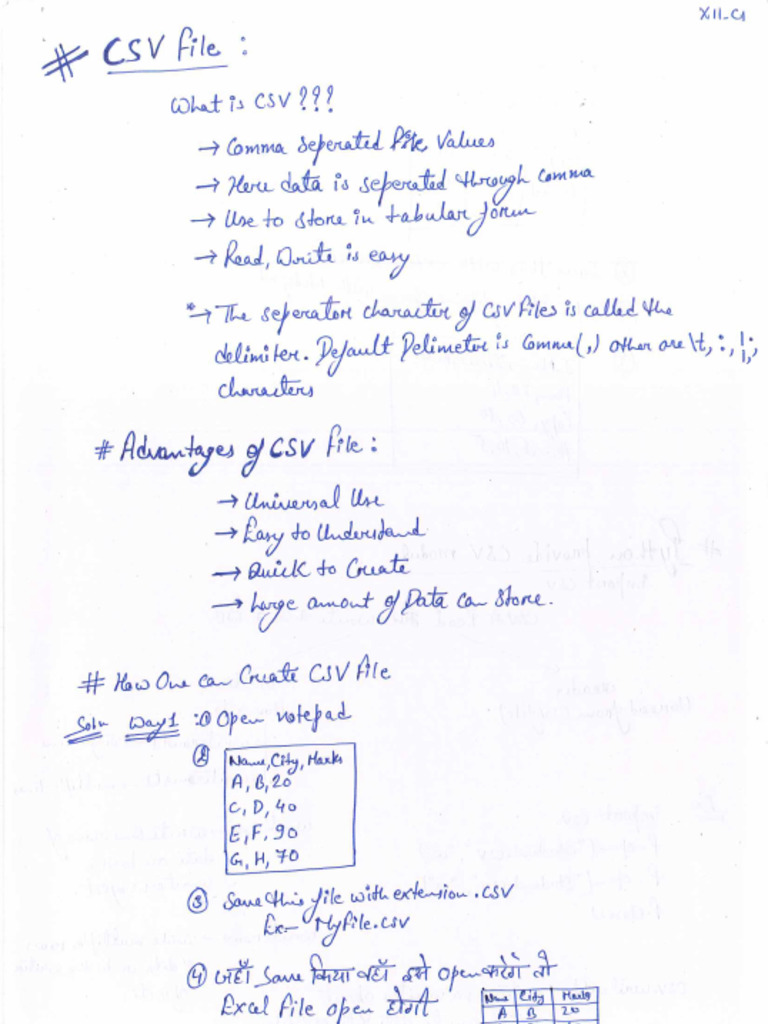 XII-CS
# CSV file :
What is CSV ???
→ Comma Seperated Values
→ Here data is seperated through comma
→ Use to store in tabular form
→ Read, Write is easy
*→ The seperator character of CSV files is called the
delimiter. Default Delimeter is Comma(,) other are \t, :, |,;
characters
# Advantages of CSV file :
→ Universal Use
→ Easy to Understand
→ Quick to Create
→ Large amount of Data can Store.
# How One can Create CSV file
Soln Way1 :① Open notepad
②
Name, City, Marks
A, B, 20
C, D, 40
E, F, 90
G, H, 70
③ Save this file with extension .CSV
Ex- Myfile.csv
④ जहाँ Save किया वहाँ उसे Open करेंगे तो
Excel file open होगी.
Name City Marks
A B 20